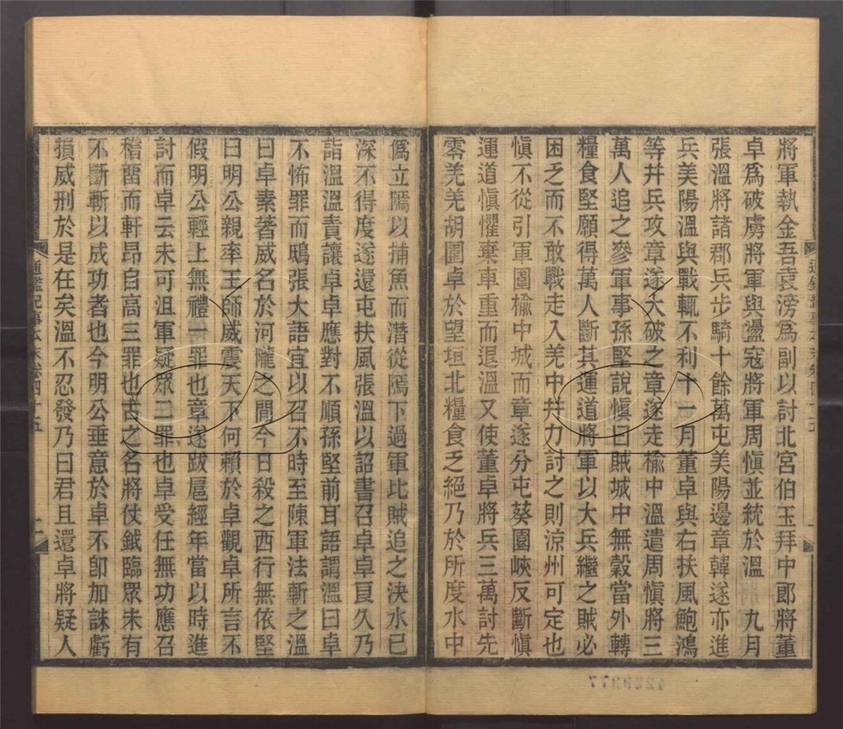 將軍執金吾袁滂爲副以討北宮伯玉拜中郎將董
卓爲破虜將軍與盪寇將軍周愼並統於溫　九月
張溫將諸郡兵步騎十餘萬屯美陽邊章韓遂亦進
兵美陽溫與戰輒不利十一月董卓與右扶風鮑鴻
等幷兵攻章遂大破之章遂走楡中溫遣周愼將三
萬人追之參軍事孫堅說愼曰賊城中無穀當外轉
糧食堅願得萬人斷其運道將軍以大兵繼之賊必
困乏而不敢戰走入羌中幷力討之則涼州可定也
愼不從引軍圍楡中城而章遂分屯葵園峽反斷愼
運道愼懼棄車重而退溫又使董卓將兵三萬討先
零羌羌胡圍卓於望垣北糧食乏絕乃於所度水中
僞立隔以捕魚而潛從隔下過軍比賊追之決水已
深不得度遂還屯扶風張溫以詔書召卓卓良久乃
詣溫溫責讓卓卓應對不順孫堅前耳語謂溫曰卓
不怖罪而鴟張大語宜以召不時至陳軍法斬之溫
曰卓素著威名於河隴之間今日殺之西行無依堅
曰明公親率王師威震天下何賴於卓觀卓所言不
假明公輕上無禮一罪也章遂跋扈經年當以時進
討而卓云未可沮軍疑眾二罪也卓受任無功應召
稽畱而軒昂自高三罪也古之名將仗鉞臨眾未有
不斷斬以成功者也今明公垂意於卓不卽加誅虧
損威刑於是在矣溫不忍發乃曰君且還卓將疑人